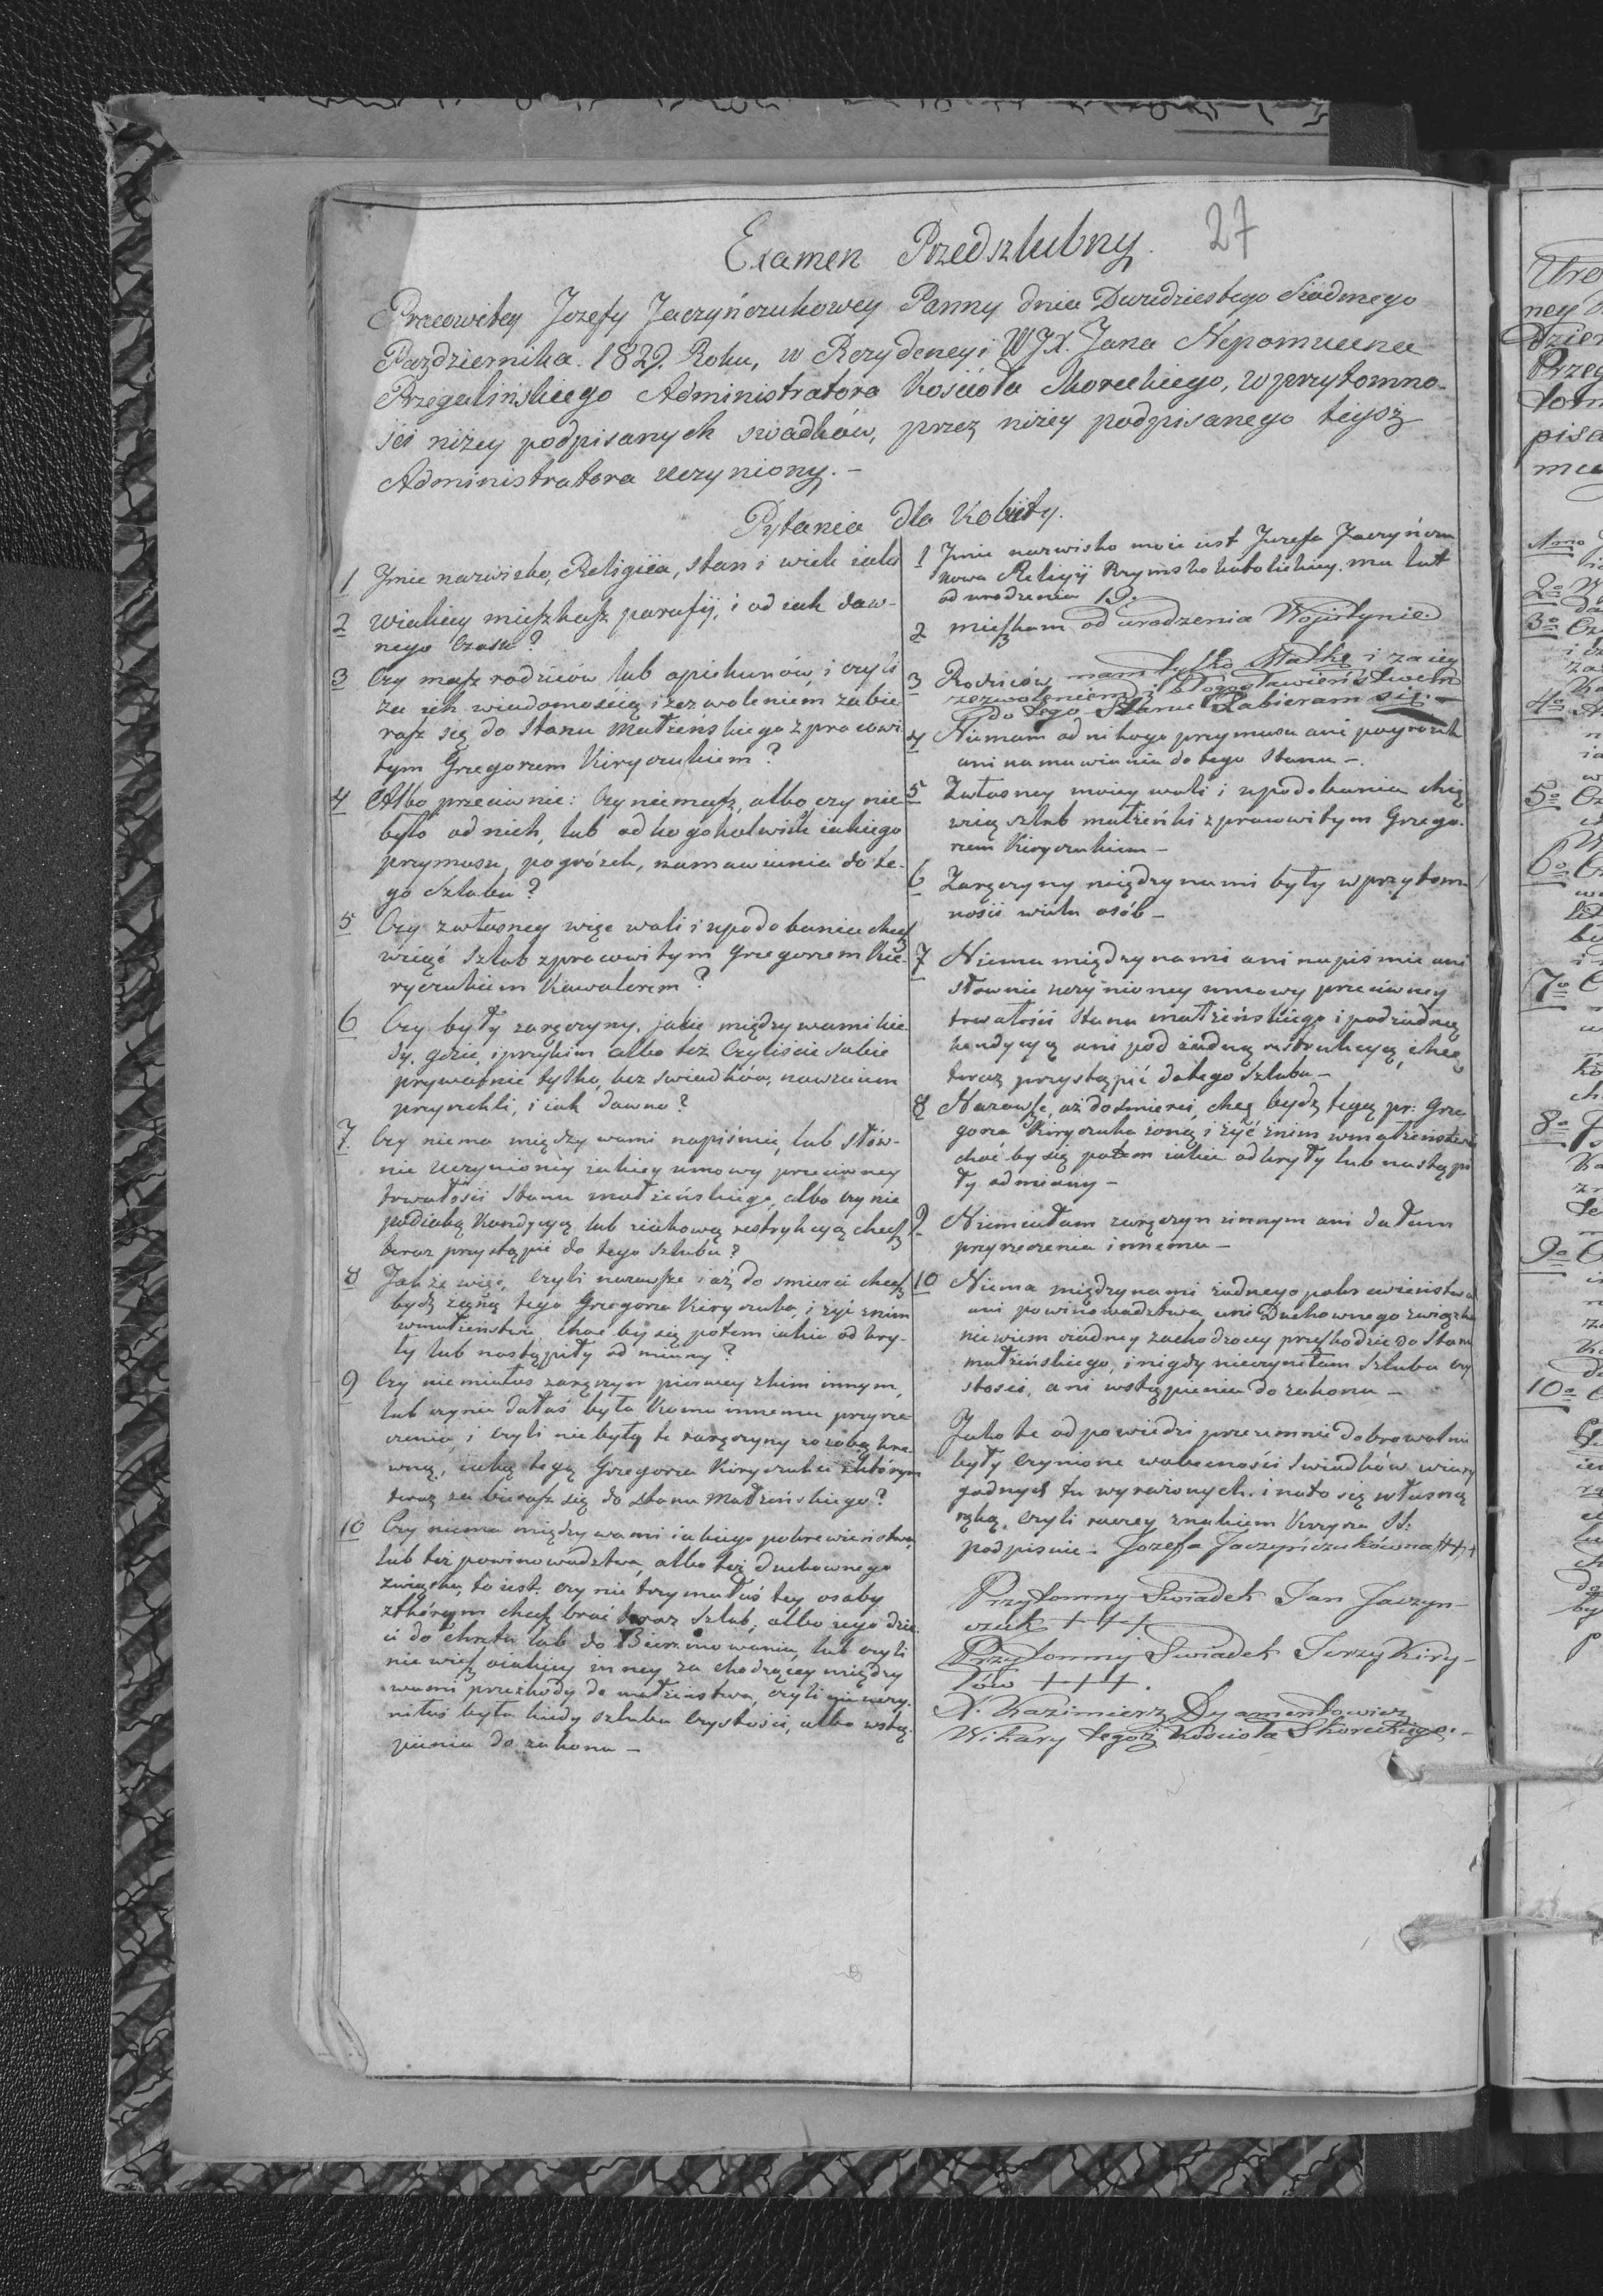 27
Examen Przedszlubny.
Pracowitey Jozefy Jaczyńczukowey Panny dnia Dwudziestego Siodmego
Pazdziernika. 1829. Roku, w Rezydencyi WJX. Jana Nepomucena
Przegalińskiego Administratora Kościoła Skoreckiego, w przytomno-
ści niżey podpisanych swiadków, przez niżey podpisanego tegoż
Administratora uczyniony. -
Pytania dla Kobiity.
1 Jmie nazwisko, Religiia, stan i wiek iaki
2 Wiakiey mieszkasz parafij, i od iak daw-
nego Czasu?
3 Czy masz rodziców lub opiekunów, i czyli
za ich wiadomością i zezwoleniem zabie
rasz się do Stanu Małżeńskiego z pracowi
tym Grzegorzem Kiryczukiem?
4 Albo przeciwnie: Czy niemasz, albo czy nie
było od nich, lub od kogokolwiek iakiego
przymusu, pogrózek, namawiania do te-
go Szlubu?
5 Czy zwłasney więc woli i upodobania chcesz
wziąść Szlub zpracowitym Grzegorzem Kie-
ryczukiem Kawalerem?
6 Czy były zaręczyny, jakie między wami kie
dy, gdzie, i przykim albo też Czyliście sobie
prywatnie tylko, bez swiadków, nawzaiem
przyrzekli, i iak dawno?
7 Czy niema między wami napiśmie, lub słow-
nie Uczynioney iakiey umowy przeciwney
trwałości Stanu małżeńskiego, albo czy nie
podiaką Kondycyą lub ziakową restrykcyą chcesz
teraz przystąpić do tego Szlubu?
8 Jakże więc, Czyli nazawsze i aż do smierci chcesz
bydź żoną tego Grzegorza Kiryczuka, i żyć znim
wmałżeństwie, choć by się potem iakie odkry-
ły lub nastąpiły odmiany?
9 Czy niemiałaś zaręczyn pierwey zkim innym,
lub czynie dałaś była Komu innemu przyrze
czenia, i czyli nie były te zaręczyny zosobą kre-
wną, iaką tegą Grzegorza Kiryczuka zktórym
teraz zabierasz się do Stanu Małżeńskiego?
10 Czy niema między wami iakiego pokrewieństwa,
lub też powinowadztwa, albo też duchownego
związku, to iest: czy nie trzymałaś tey osoby
zktórym chcesz brać teraz Szlub, albo iego dzie-
ci do Chrztu lub do Bierzmowania, lub czyli
nie wiesz oiakiey inney zachodzącey między
wami przeszkody do małżeństwa, czyli nieuczy-
niłaś była kiedy szlubu Czystości, albo wstą-
pienia do zakonu -
1 Jmie nazwisko moie iest Jozefa Jaczyńczu
kowa Religij Rzymskokatolickiey. mu lat
od urodzenia 19.
2 mieszkam od urodzenia
3 Rodziców mam tylko Matkę i za iey
zezwoleniem i błogosławieństwem
do tego Stanu Zabieram się. -
4 Niemam od nikogo przymusu ani pogrozek
ani namawiania do tego Stanu -.
5 Zwłasney moiey woli i upodobania chcę
wziąć szlub małżeński zpracowitym Grzego-
rzem Kiryczukiem -
6 Zaręczyny między nami były wprzytom-
ności wielu osób -
7 Niema między nami ani napiśmie ani
słownie uczynioney umowy przeciwney
trwałości Stanu małżeńskiego i podżadną
kondycyą ani pod żadną restrykcyą, chcę
teraz przystąpić dotego Szlubu -
8 Nazawsze, aż do śmierci, chcę bydź tegą pr: Grze
gorza Kiryczuka żoną i żyć znim wmałżeństwie
choć by się potem iakie odkryły lub nastąpi
ły odmiany -
9 Niemiałam zaręczyn zinnym ani dałam
przyrzeczenia innemu -
10 Niema między nami żadnego pokrewieństwa
ani powinowadztwa, ani Duchownego związku
niewiem oiadney zachodzącey przeszkodzie do Stanu
małżeńskiego, i nigdy nieczyniłam Szlubu Czy
stości, ani wstąpienia do zakonu -
Jako te odpowiedzi przezemnie dobrowolnie
były Czynione wobecności Swiadków wiary
godnych tu wyrażonych. i nato się własną
ręką, Czyli raczey znakiem Krzyża SS:
podpisuie - Jozefa Jaczyńczukówna +++
Przytomny Swiadek Jan Jaczyn-
czuk +++
Przytomny Swiadek Jerzy Kiry-
+++.
X. Kazimierz Dyamentowicz
Wikary tegoż Kościoła Skoreckiego. -